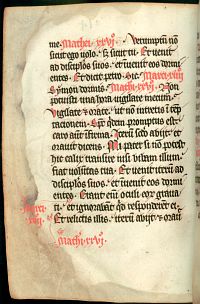 me. Mathei .xxvj. Verumptn nō
sicut ego uolo. sꝫ sicut tu. Et uenit
ad discipłos suos. et īuenit eos dormi
entes. Et dicit petro. Marci .xiiij
Symon dormis. Mathi .xxvj. Non
potuistis una hora uigilare mecum.
Vigilate et orate. ut nō intretis ī tem
ptacionem. Spc̄ qdem promptus est.
caro aut īfirma. Iterū scdo abijt. et
orauit dicens. Mi pater si nō potest
hic calix transire nisi bibam illum.
fiat uoluntas tua. Et uenit iterū
ad discipłos suos. et īuenit eos dormi
entes. Erant enī oculi eorū graua
ti. et ignorabāt qd responderēt ei.
Et relictis illis. iterū abijt et oraui
Mathi .xxvj.